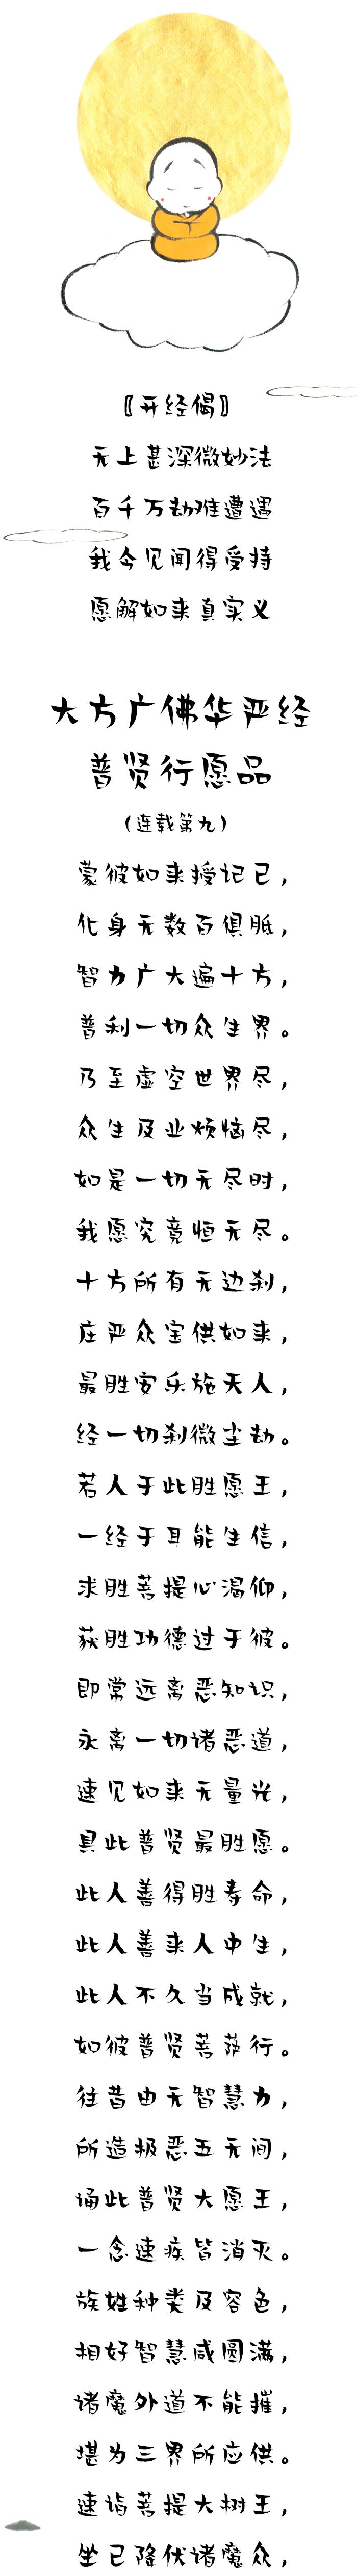 〖开经偈〗
无上甚深微妙法
百千万劫难遭遇
我今见闻得受持
愿解如来真实义
大方广佛华严经
普贤行愿品
(连载第九)
蒙彼如来授记已,
化身无数百俱胝,
智力广大遍十方,
普利一切众生界。
乃至虚空世界尽,
众生及业烦恼尽,
如是一切无尽时,
我愿究竟恒无尽。
十方所有无边刹,
庄严众宝供如来,
最胜安乐施天人,
经一切刹微尘劫。
若人于此胜愿王,
一经于耳能生信,
求胜菩提心渴仰,
获胜功德过于彼。
即常远离恶知识,
永离一切诸恶道,
速见如来无量光,
具此普贤最胜愿。
此人善得胜寿命,
此人善来人中生,
此人不久当成就,
如彼普贤菩萨行。
往昔由无智慧力,
所造极恶五无间,
诵此普贤大愿王,
一念速疾皆消灭。
族姓种类及容色,
相好智慧咸圆满,
诸魔外道不能摧,
堪为三界所应供。
速诣菩提大树王,
坐已降伏诸魔众,